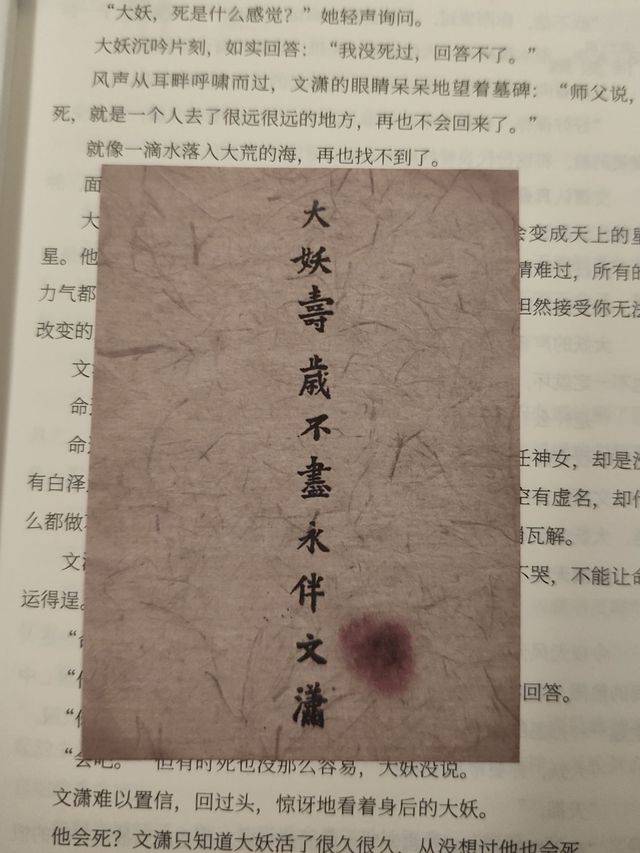 “大妖，死是什么感觉？”她轻声询问。
大妖沉吟片刻，如实回答：“我没死过，回答不了。”
风声从耳畔呼啸而过，文潇的眼睛呆呆地望着墓碑：“师父说，
死，就是一个人去了很远很远的地方，再也不会回来了。”
就像一滴水落入大荒的海，再也找不到了。
面
大
会变成天上的星
星。他
情难过，所有的
力气都
坦然接受你无法
改变的
文
命
命
任神女，却是没
有白泽
空有虚名，却什
么都做
瓦解。
文潇
不哭，不能让命
运得逞。
回答。
“会吧。”但有时死也没那么容易，大妖没说。
文潇难以置信，回过头，惊讶地看着身后的大妖。
他会死？文潇只知道大妖活了很久很久，从没想过他也会死
大妖壽歲不盡永伴文瀟